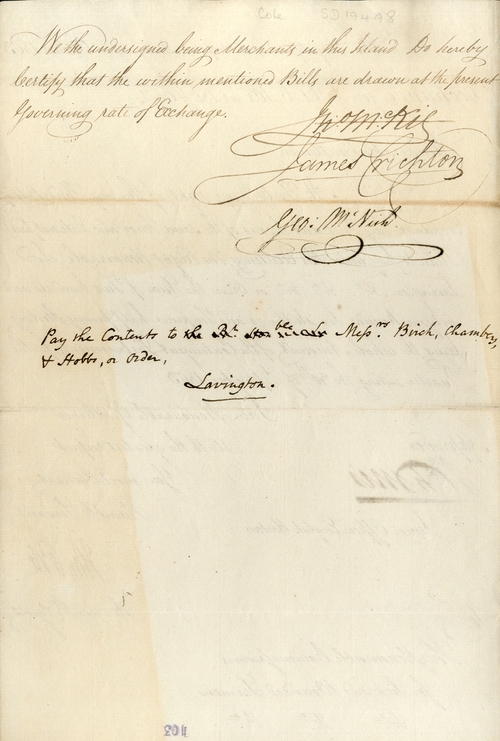 Cole SD 19498
We the undersigned being Merchants in this Island Do hereby
Certify that the within mentioned Bills are drawn at the present
Governing rate of Exchange.
James Crichton
Geo: McNish
Pay the Contents to the Rt. Honble Messrs. Birch, Chambers,
& Hobbs, or Order,
Lavington.